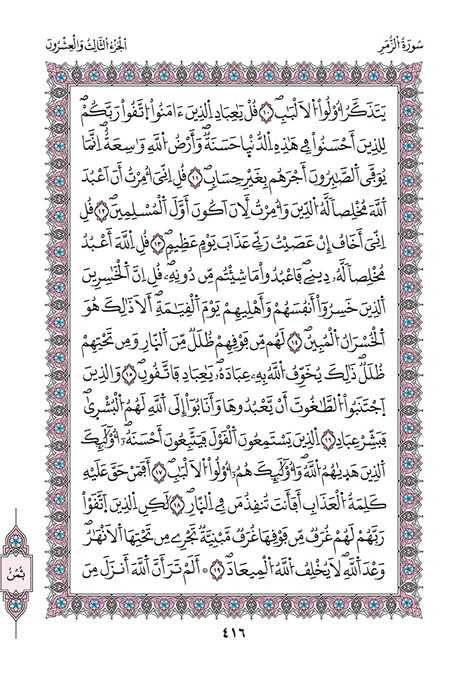 سُورَةُ الزُّمَرِ
الجُزْءُ الثَّالِثُ وَالْعِشْرُونَ
يَتَذَكَّرُ أُوْلُوا۟ اُ۬لَالْبَٰبِۖ ١٠ قُلْ يَٰعِبَادِ اِ۬لذِينَ ءَامَنُوا۟ اُ۪تَّقُوا۟ رَبَّكُمْۖ
لِلذِينَ أَحْسَنُوا۟ فِے هَٰذِهِ اِ۬لدُّنْيَا حَسَنَةٞۖ وَأَرْضُ اُ۬للَّهِ وَٰسِعَةٌۖ اِنَّمَا
يُوَفَّي اَ۬لصَّٰبِرُونَ أَجْرَهُم بِغَيْرِ حِسَابٖۖ ١١ قُلِ اِنِّيَ أُمِرْتُ أَنَ اَعْبُدَ
اَ۬للَّهَ مُخْلِصاٗ لَّهُ اُ۬لدِّينَ وَأُمِرْتُ لِأَنَ اَكُونَ أَوَّلَ اَ۬لْمُسْلِمِينَۖ ١٢ قُلِ
اِنِّيَ أَخَافُ إِنْ عَصَيْتُ رَبِّے عَذَابَ يَوْمٍ عَظِيمٖۖ ١٣ قُلِ اِ۬للَّهَ أَعْبُدُ
مُخْلِصاٗ لَّهُۥ دِينِےۖ فَاعْبُدُوا۟ مَا شِئْتُم مِّن دُونِهِۦۖ قُلِ اِنَّ اَ۬لْخَٰسِرِينَ
اَ۬لذِينَ خَسِرُوٓا۟ أَنفُسَهُمْ وَأَهْلِيهِمْ يَوْمَ اَ۬لْقِيَٰمَةِۖ أَلَا ذَٰلِكَ هُوَ
اَ۬لْخُسْرَانُ اُ۬لْمُبِينُۖ ١٤ لَهُم مِّن فَوْقِهِمْ ظُلَلٞ مِّنَ اَ۬لنّ۪ارِ وَمِن تَحْتِهِمْ
ظُلَلٞۖ ذَٰلِكَ يُخَوِّفُ اُ۬للَّهُ بِهِۦ عِبَادَهُۥۖ يَٰعِبَادِ فَاتَّقُونِۖ ١٥ وَالذِينَ
اَ۪جْتَنَبُوا۟ اُ۬لطَّٰغُوتَ أَنْ يَّعْبُدُوهَا وَأَنَابُوٓا۟ إِلَي اَ۬للَّهِ لَهُمُ اُ۬لْبُشْر۪يٰۖ
فَبَشِّرْ عِبَادِۖ ١٦ اِ۬لذِينَ يَسْتَمِعُونَ اَ۬لْقَوْلَ فَيَتَّبِعُونَ أَحْسَنَهُۥٓۖ أُوْلَٰٓئِكَ
اَ۬لذِينَ هَد۪يٰهُمُ اُ۬للَّهُۖ وَأُوْلَٰٓئِكَ هُمُۥٓ أُوْلُوا۟ اُ۬لَالْبَٰبِۖ ١٧ أَفَمَنْ حَقَّ عَلَيْهِ
كَلِمَةُ اُ۬لْعَذَابِ أَفَأَنتَ تُنقِذُ مَن فِے اِ۬لنّ۪ارِۖ ١٨ لَٰكِنِ اِ۬لذِينَ اَ۪تَّقَوْا۟
رَبَّهُمْ لَهُمْ غُرَفٞ مِّن فَوْقِهَا غُرَفٞ مَّبْنِيَّةٞ تَجْرِے مِن تَحْتِهَا اَ۬لَانْهَٰرُۖ
وَعْدَ اَ۬للَّهِ لَا يُخْلِفُ اُ۬للَّهُ اُ۬لْمِيعَادَۖ ١٩ ۞ أَلَمْ تَرَ أَنَّ اَ۬للَّهَ أَنزَلَ مِنَ
ثُمُنْ
٤١٦